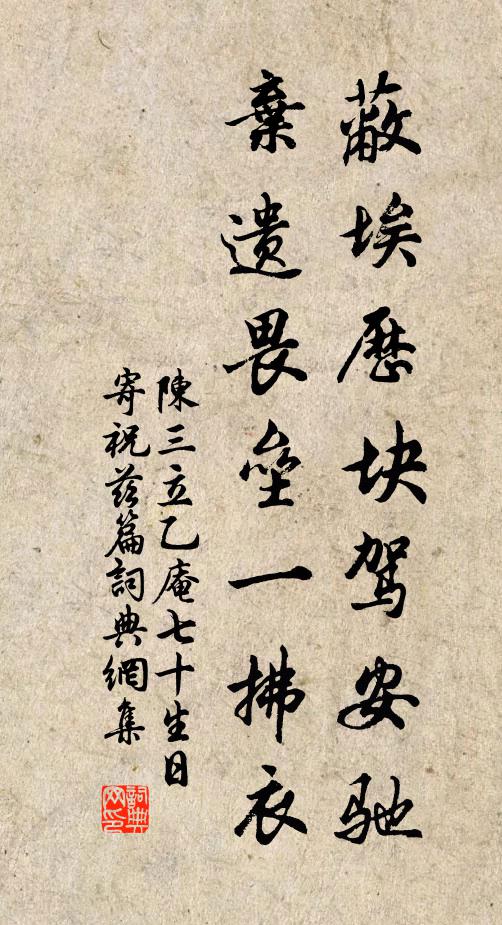 蔽埃歷块駕安馳
棄遺畏壘一拂衣
陳三立乙庵七十生日
寄祝兹篇詞典網集
詞典网印